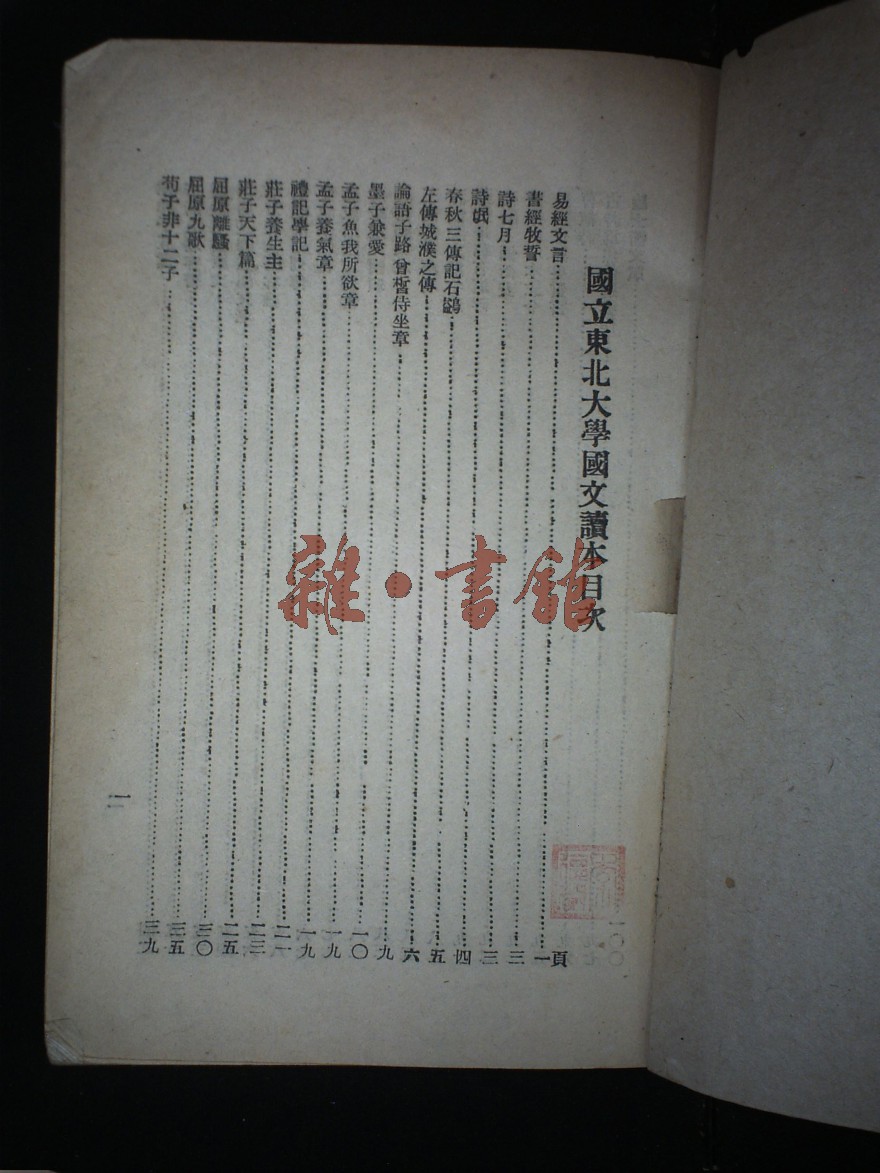 國立東北大學國文讀本目次
頁
易經文言……一
書經牧誓……三
詩七月……三
詩氓……四
春秋三傳記石鷁……五
左傳城濮之傳……六
論語子路曾晳侍坐章……九
墨子兼愛……一〇
孟子魚我所欲章……一九
孟子養氣章……一九
禮記學記……二一
莊子養生主……二三
莊子天下篇……二五
屈原離騷……三〇
屈原九歌……三五
荀子非十二子……三九
一
雜·書館